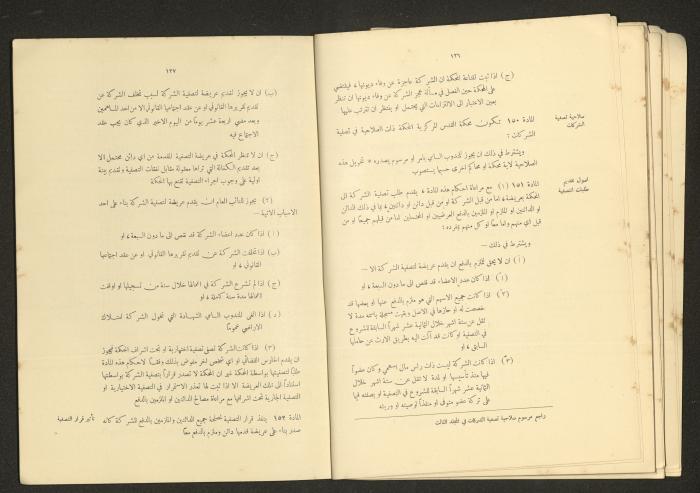 ١٣٦
(ج) اذا ثبت لقناعة المحكمة ان الشركة عاجزة عن وفاء ديونها ، فيقتضي
على المحكمة حين الفصل في مسألة عجز الشركة عن وفاء ديونها ان تنظر
بعين الاعتبار الى الالتزامات التي يحتمل او ينتظر ان تترتب عليها
صلاحية تصفية
الشركات
المادة ١٥٠ تكون محكمة القدس المركزية المحكمة ذات الصلاحية في تصفية
الشركات :
ويشترط في ذلك ان يجوز للمندوب السامي بامر او مرسوم يصدره * تخويل هذه
الصلاحية لاية محكمة او محاكم اخرى حسبما يستصوب
اصول تقديم
طلبات التصفية
المادة ١٥١ (١) مع مراعاة احكام هذه المادة ، يقدم طلب تصفية الشركة الى
المحكمة بعريضة ، اما من قبل الشركة او من قبل دائن او دائنين ، بما في ذلك الدائن
او الدائنين او الملزم او الملزمين بالدفع العرضيين او المحتملين اما من قبلهم جميعا او من
قبل اي منهم واما معا او كل منهم بمفرده :
ويشترط في ذلك —
(أ) ان لا يحق لملزم بالدفع ان يقدم عريضة لتصفية الشركة الا —
(١) اذا كان عدد الاعضاء قد نقص الى ما دون السبعة ، او
(٢) اذا كانت جميع الاسهم التي هو ملزم بالدفع عنها او بعضها قد
خصصت له او حازها في الاصل وبقيت مسجلة باسمه مدة لا
تقل عن ستة اشهر خلال الثمانية عشر شهراً السابقة للشروع
في التصفية او كانت قد آلت اليه بطريق الارث عن حاملها
السابق ، او
(٣) اذا كانت الشركة ليست ذات رأس مال اسهمي وكان عضواً
فيها منذ تأسيسها او لمدة لا تقل عن ستة اشهر خلال
الثمانية عشر شهراً السابقة للشروع في التصفية او بصفته قيماً
على تركة عضو متوفى او منفذاً لوصيته او وريثه
راجع مرسوم صلاحية تصفية الشركات في المجلد الثالث
١٣٧
(ب) ان لا يجوز تقديم عريضة لتصفية الشركة لسبب تخلف الشركة عن
تقديم تقريرها القانوني او عن عقد اجتماعها القانوني الا من احد المساهمين
وبعد مضي اربعة عشر يوماً من اليوم الاخير الذي كان يجب عقد
الاجتماع فيه
(ج) ان لا تنظر المحكمة في عريضة التصفية المقدمة من اي دائن محتمل الا
بعد تقديم الكفالة التي تراها معقولة مقابل نفقات التصفية وتقديم بينة
اولية على وجوب اجراء التصفية تقتنع بها المحكمة
(٢) يجوز للنائب العام ان يقدم عريضة لتصفية الشركة بناء على احد
الاسباب الآتية —
(أ) اذا كان عدد اعضاء الشركة قد نقص الى ما دون السبعة ، او
(ب) اذا تخلفت الشركة عن تقديم تقريرها القانوني او عن عقد اجتماعها
القانوني ، او
(ج) اذا لم تشرع الشركة في اعمالها خلال سنة من تسجيلها او اوقفت
اعمالها مدة سنة كاملة ، او
(د) اذا الغى المندوب السامي الشهادة التي تخول الشركة امتلاك
الاراضي عموماً
(٣) اذا كانت الشركة تصفى تصفية اختيارية او تحت اشراف المحكمة فيجوز
ان يقدم الحارس القضائي او اي شخص آخر مفوض بذلك وفقاً لاحكام هذه المادة
طلباً لتصفيتها بواسطة المحكمة غير ان المحكمة لا تصدر قراراً بتصفية الشركة بواسطتها
استناداً الى تلك العريضة الا اذا ثبت لها تعذر الاستمرار في التصفية الاختيارية او
التصفية الجارية تحت اشرافها مع مراعاة مصالح الدائنين او الملزمين بالدفع
تأثير قرار التصفية
المادة ١٥٢ ينفذ قرار التصفية لمصلحة جميع الدائنين والملزمين بالدفع للشركة كانه
صدر بناء على عريضة قدمها دائن وملزم بالدفع معاً